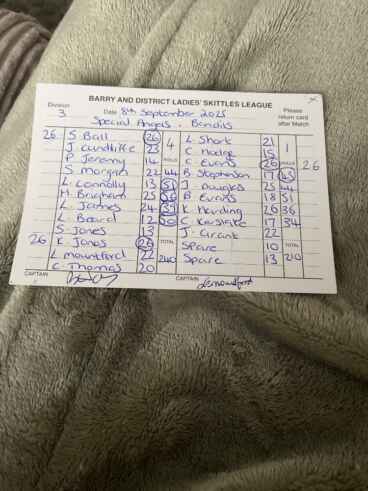 BARRY AND DISTRICT LADIES' SKITTLES LEAGUE
Division 3 Date 8th September 2025 Please return card after Match
Special Angels . Bandits
26 S Ball 26 4 L. Short 21 1
J Cundliffe 23 C Hodge 15
P Jeremy 14 HOLLS C Evans 26 HOLLS 26
S Morgan 22 44 B Stephenson 17 43
L. Connolly 13 51 J Douglas 25 44
M Brigham 25 56 B Evans 18 51
L James 24 39 K Harding 26 36
L Beard 12 50 C Keislake 17 34
S-Jones 13 J Grant 22
26 K Jones 26 TOTAL Spare 10 TOTAL
L Mountford 22 240 Spare 13 210
C-Thomas 20
CAPTAIN CAPTAIN